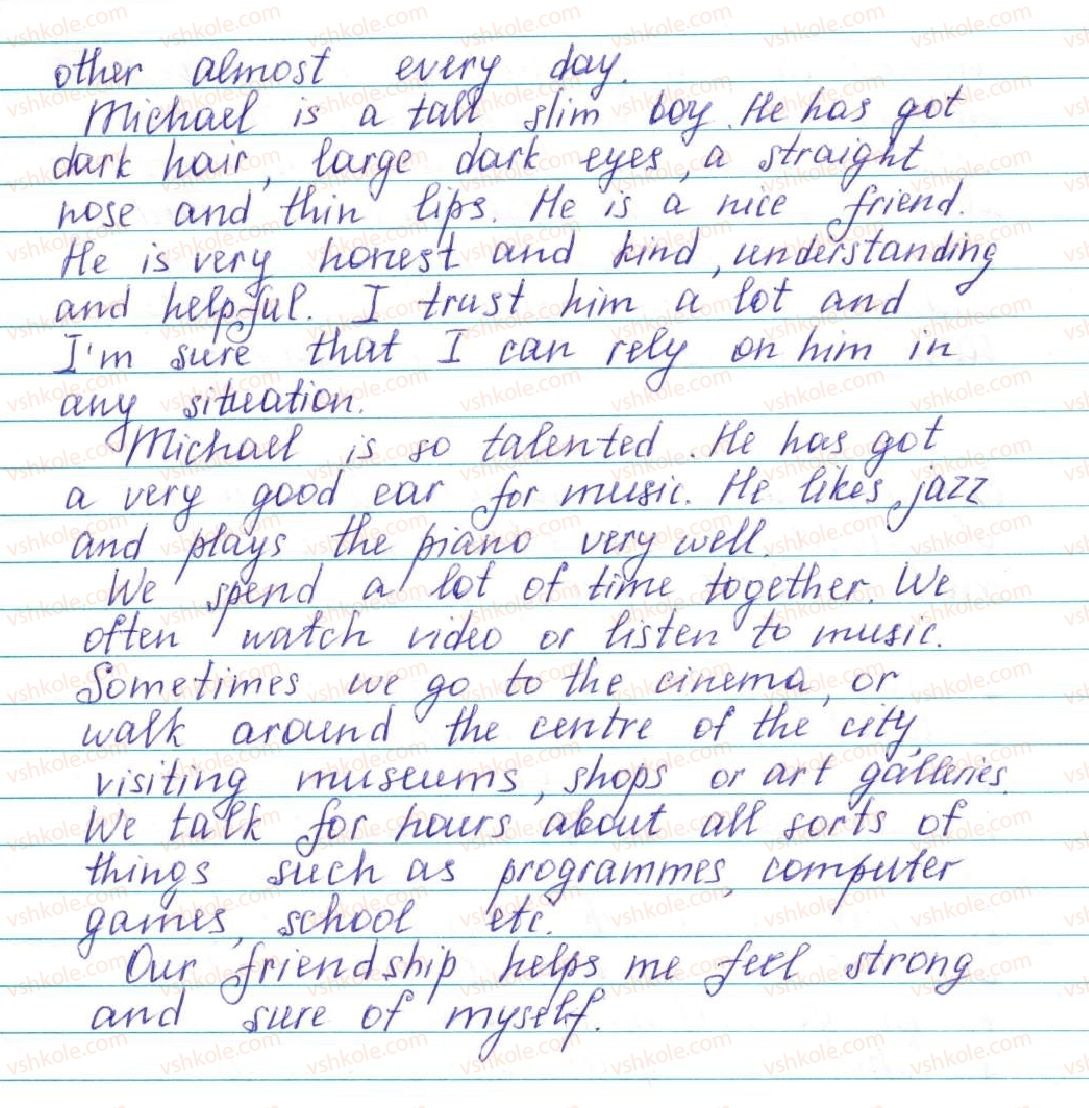 other almost every day.
Michael is a tall slim boy. He has got
dark hair, large dark eyes, a straight
nose and thin lips. He is a nice friend.
He is very honest and kind, understanding
and helpful. I trust him a lot and
I'm sure that I can rely on him in
any situation.
Michael is so talented. He has got
a very good ear for music. He likes jazz
and plays the piano very well.
We spend a lot of time together. We
often watch video or listen to music.
Sometimes we go to the cinema, or
walk around the centre of the city,
visiting museums, shops or art galleries.
We talk for hours about all sorts of
things such as programmes, computer
games, school etc.
Our friendship helps me feel strong
and sure of myself.